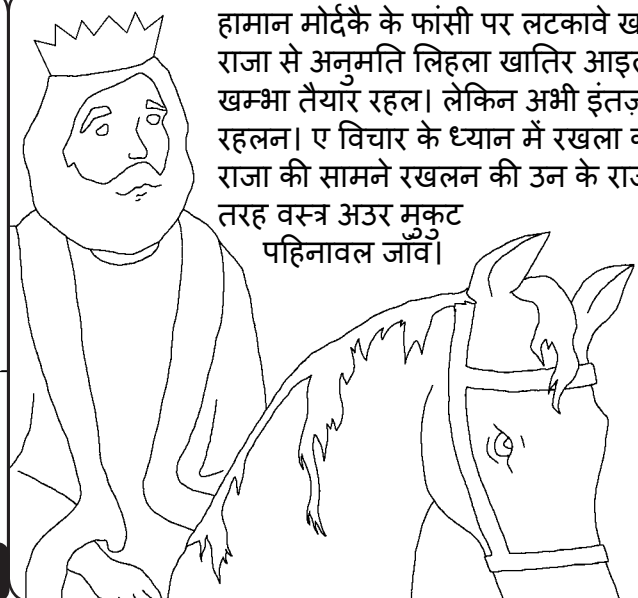 हामान मोर्दकै के फांसी पर लटकावे
राजा से अनुमति लिहला खातिर
खम्भा तैयार रहल। लेकिन अभी
रहलन। ए विचार के ध्यान में रखला
राजा की सामने रखलन की उन के
तरह वस्त्र अउर मुकुट
पहिनावल जाँव।